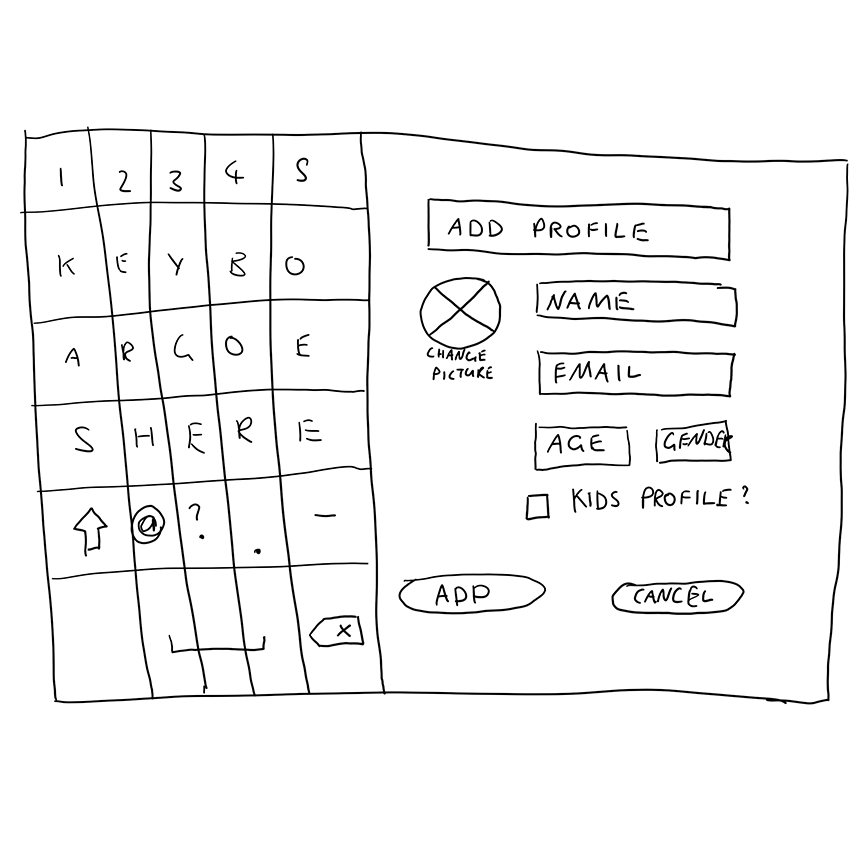 1 2 3 4 5
K E Y B O
A R G O E
S H E R E
@ ? . –
X
ADD PROFILE
CHANGE
PICTURE
NAME
EMAIL
AGE GENDER
KIDS PROFILE?
ADD CANCEL